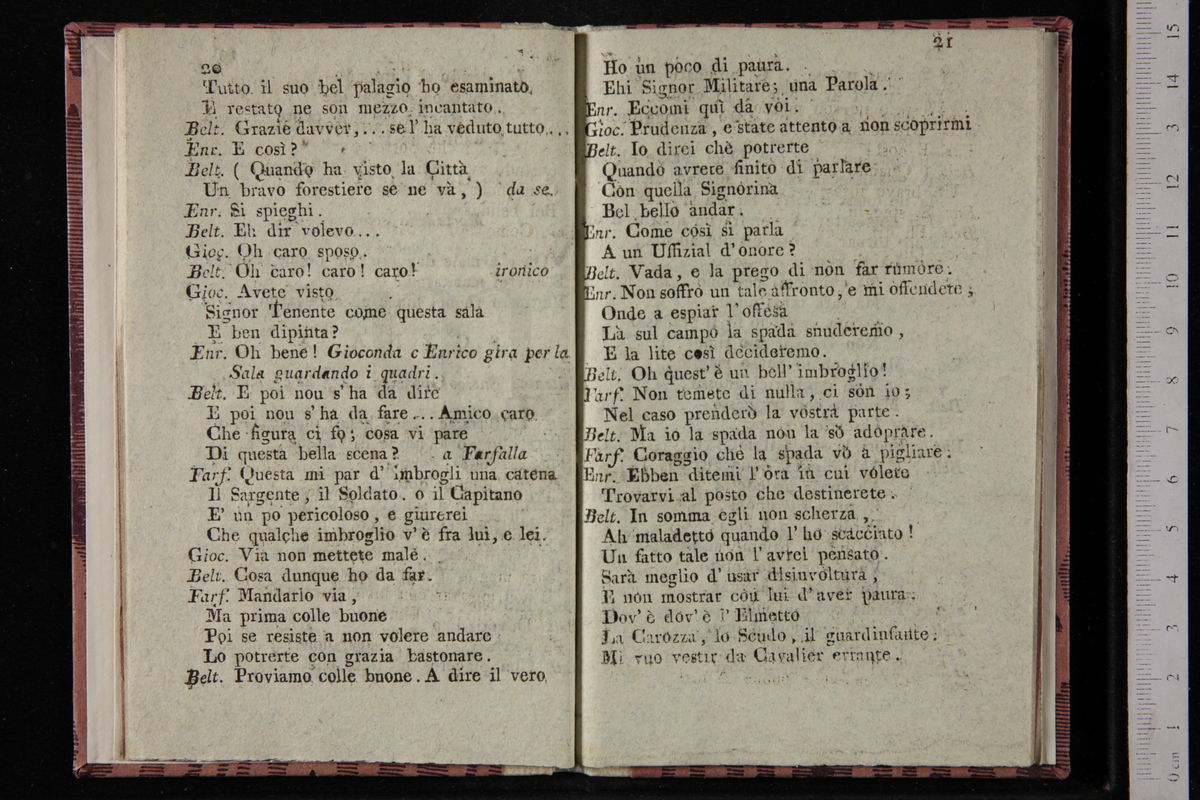 20
Tutto il suo bel palagio ho esaminato,
E restato ne son mezzo incantato.
Belt. Grazie davver,... se l'ha veduto tutto...
Enr. E così?
Belt. ( Quando ha visto la Città
Un bravo forestiere se ne và, ) da se.
Enr. Si spieghi.
Belt. Eh dir volevo...
Gioc. Oh caro sposo.
Belt. Oh caro! caro! caro! ironico
Gioc. Avete visto
Signor Tenente come questa sala
E ben dipinta?
Enr. Oh bene! Gioconda e Enrico gira per la
Sala guardando i quadri.
Belt. E poi nou s'ha da dire
E poi nou s'ha da fare... Amico caro
Che figura ci fo; cosa vi pare
Di questa bella scena? a Farfalla
Farf. Questa mi par d'imbrogli una catena
Il Sargente, il Soldato. o il Capitano
E' un pò pericoloso, e giurerei
Che qualche imbroglio v'è fra lui, e lei.
Gioc. Via non mettete male.
Belt. Cosa dunque ho da far.
Farf. Mandarlo via,
Ma prima colle buone
Poi se resiste a non volere andare
Lo potrerte con grazia bastonare.
Belt. Proviamo colle buone. A dire il vero
21
Ho un poco di paura.
Ehi Signor Militare; una Parola.
Enr. Eccomi quì da voi.
Gioc. Prudenza, e state attento a non scoprirmi
Belt. Io direi chè potrerte
Quando avrete finito di parlare
Con quella Signorina
Bel bello andar.
Enr. Come così si parla
A un Uffizial d'onore?
Belt. Vada, e la prego di non far rumore.
Enr. Non soffro un tale affronto, e mi offendete;
Onde a espiar l'offesa
Là sul campo la spada snuderemo,
E la lite così decideremo.
Belt. Oh quest'è un bell'imbroglio!
Farf. Non temete di nulla, ci son io;
Nel caso prenderò la vostra parte.
Belt. Ma io la spada nou la sò adoprare.
Farf. Coraggio chè la spada vò a pigliare.
Enr. Ebben ditemi l'ora in cui volete
Trovarvi al posto che destinerete.
Belt. In somma egli non scherza,
Ah maladetto quando l'ho scacciato!
Un fatto tale non l'avrei pensato.
Sarà meglio d'usar disinvoltura,
E non mostrar con lui d'aver paura.
Dov'è dov'è l'Elmetto
La Carozza, lo Scudo, il guardinfante.
Mi vuo vestir da Cavalier errante.
0 cm 1 2 3 4 5 6 7 8 9 10 11 12 3 14 15